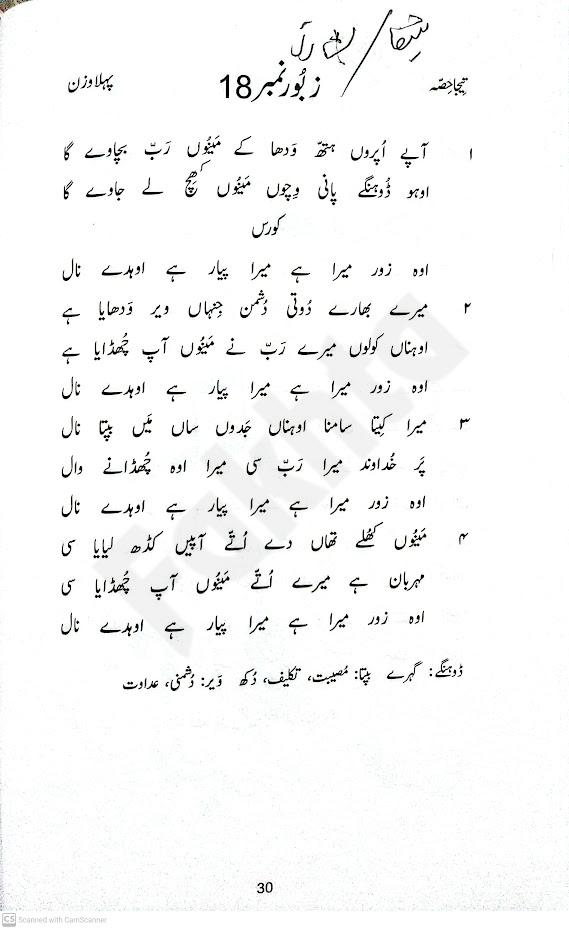 تیجا حصّہ
زبُور نمبر 18
پہلا وزن
۱ آپے اُپروں ہتھ وَدھا کے مَینُوں رَبّ بچاوے گا
اوہو ڈُوہنگے پانی وِچوں مَینُوں کھِچ لے جاوے گا
کورس
اوہ زور میرا ہے میرا پیار ہے اوہدے نال
۲ میرے بھارے دُوتی دُشمن جِنہاں ویر وَدھایا ہے
اوہناں کولوں میرے رَبّ نے مَینُوں آپ چُھڈایا ہے
اوہ زور میرا ہے میرا پیار ہے اوہدے نال
۳ میرا کِیتا سامنا اوہناں جَدوں ساں مَیں بپتا نال
پَر خُداوند میرا رَبّ سی میرا اوہ چُھڈانے وال
اوہ زور میرا ہے میرا پیار ہے اوہدے نال
۴ مَینُوں کھُلے تھاں دے اُتّے آپیں کڈھ لیایا سی
مہربان ہے میرے اُتّے مَینُوں آپ چُھڈایا سی
اوہ زور میرا ہے میرا پیار ہے اوہدے نال
ڈوہنگے: گہرے بپتا: مُصیبت، تکلیف، دُکھ وَیر: دُشمنی، عداوت
30
Fakhta
CS Scanned with CamScanner